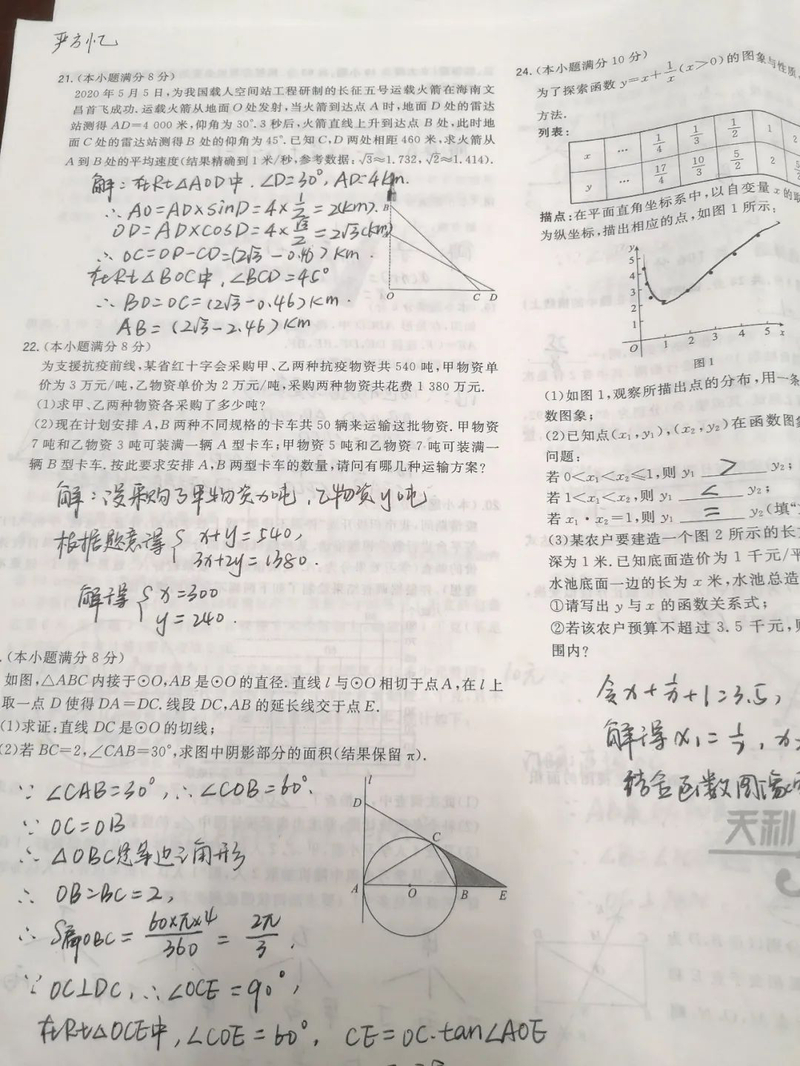 严方忆
21.(本小题满分8分)
2020年5月5日,为我国载人空间站工程研制的长征五号运载火箭在海南文
昌首飞成功.运载火箭从地面O处发射,当火箭到达点A时,地面D处的雷达
站测得AD=4 000米,仰角为30°.3秒后,火箭直线上升到达点B处,此时地
面C处的雷达站测得B处的仰角为45°.已知C,D两处相距460米,求火箭从
A到B处的平均速度(结果精确到1米/秒,参考数据:√3≈1.732,√2≈1.414).
解:在Rt△AOD中.∠D=30°,AD=4km.
∴AO=AD×sinD=4×1/2=2(km).
OD=AD×cosD=4×√3/2=2√3(km)
∴OC=OD-CD=(2√3-0.46)km
在Rt△BOC中,∠BCD=45°
∴BO=OC=(2√3-0.46)km.
AB=(2√3-2.46)km
B
O
C
D
22.(本小题满分8分)
为支援抗疫前线,某省红十字会采购甲、乙两种抗疫物资共540吨,甲物资单
价为3万元/吨,乙物资单价为2万元/吨,采购两种物资共花费1 380万元.
(1)求甲、乙两种物资各采购了多少吨?
(2)现在计划安排A,B两种不同规格的卡车共50辆来运输这批物资.甲物资
7吨和乙物资3吨可装满一辆A型卡车;甲物资5吨和乙物资7吨可装满一
辆B型卡车.按此要求安排A,B两型卡车的数量,请问有哪几种运输方案?
解:设采购了甲物资x吨,乙物资y吨
根据题意得{x+y=540,
3x+2y=1380.
解得{x=300
y=240.
.(本小题满分8分)
如图,△ABC内接于⊙O,AB是⊙O的直径.直线l与⊙O相切于点A,在l上
取一点D使得DA=DC.线段DC,AB的延长线交于点E.
(1)求证:直线DC是⊙O的切线;
(2)若BC=2,∠CAB=30°,求图中阴影部分的面积(结果保留π).
∵∠CAB=30°,∴∠COB=60°.
∵OC=OB
∴△OBC是等边三角形
∴OB=BC=2,
∴S扇OBC=60×π×4/360=2π/3.
∵OC⊥DC,∴∠OCE=90°,
在Rt△OCE中,∠COE=60°, CE=OC·tan∠AOE
l
D
C
A
O
B
E
24.(本小题满分10分)
为了探索函数y=x+1/x(x>0)的图象与性质,
方法.
列表:
x … 1/4 1/3 1/2 1 2
y … 17/4 10/3 5/2 2 5/2
描点:在平面直角坐标系中,以自变量x的取
为纵坐标,描出相应的点,如图1所示;
y
5
4
3
2
1
O 1 2 3 4 5 x
图1
(1)如图1,观察所描出点的分布,用一条
数图象;
(2)已知点(x₁,y₁),(x₂,y₂)在函数图象
问题:
若0<x₁<x₂≤1,则y₁ > y₂;
若1<x₁<x₂,则y₁ < y₂;
若x₁·x₂=1,则y₁ = y₂(填“
(3)某农户要建造一个图2所示的长方
深为1米.已知底面造价为1千元/平
水池底面一边的长为x米,水池总造
①请写出y与x的函数关系式;
②若该农户预算不超过3.5千元,则
围内?
令x+1/x+1=3.5,
解得x₁=1/2,x₂
结合函数图象
天利